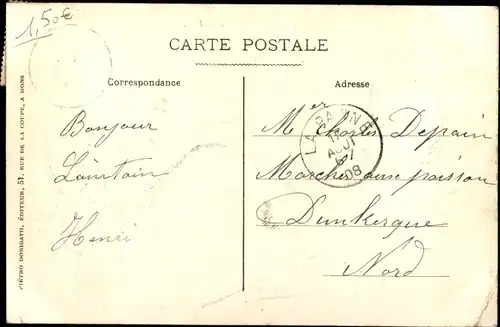 1,50€
CARTE POSTALE
Correspondance
Adresse
Bonjour
Lointain
Henri
Mer Charles Depain
Marché aux poisson
Dunkerque
Nord
LA PANNE
AOUT
08
PIETRO DONDATO, ÉDITEUR, 51, RUE DE LA COUPE, A MONS